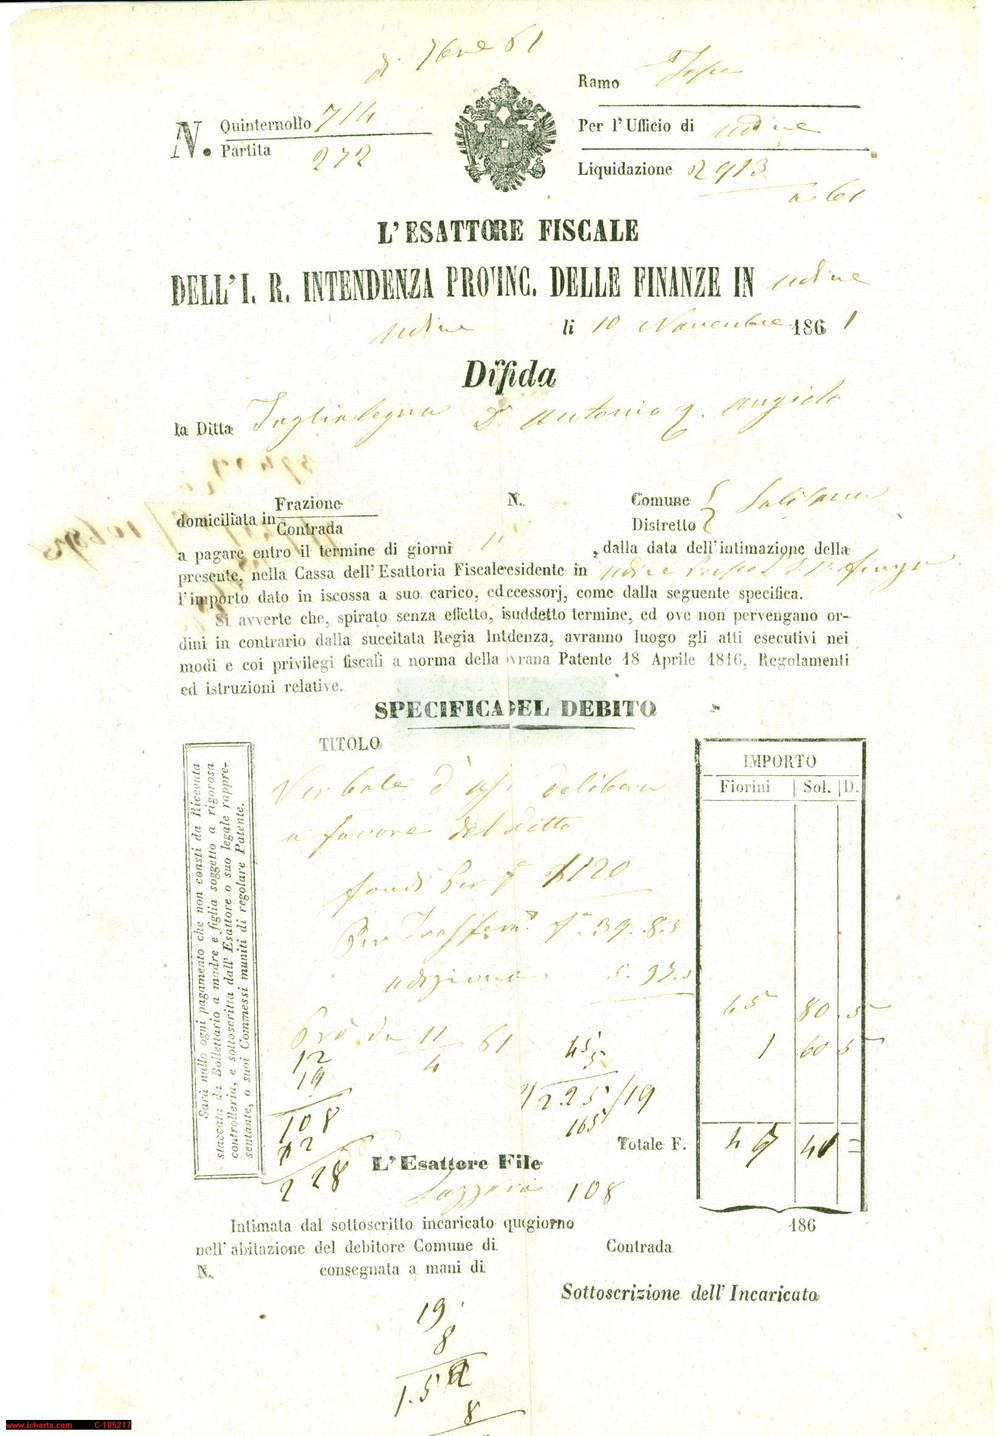 di 7bre 61
N. Quinternollo 714
Partita 272
Ramo Tasse
Per l'Ufficio di Udine
Liquidazione 2913
a 61
L'ESATTORE FISCALE
DELL'I. R. INTENDENZA PROVINC. DELLE FINANZE IN Udine
Udine li 10 Novembre 1861
Diffida
la Ditta Taglialegna Dr Antonio q. Angiolo
domiciliata in Frazione Contrada N. Comune Distretto
a pagare entro il termine di giorni , dalla data dell'intimazione della
presente, nella Cassa dell'Esattoria Fiscale residente in Udine
l'importo dato in iscossa a suo carico, ed ccessorj, come dalla seguente specifica.
Si avverte che, spirato senza effetto, i suddetto termine, ed ove non pervengano or-
dini in contrario dalla succitata Regia Intdenza, avranno luogo gli atti esecutivi nei
modi e coi privilegi fiscali a norma della vrana Patente 18 Aprile 1816, Regolamenti
ed istruzioni relative.
SPECIFICA DEL DEBITO
TITOLO
IMPORTO
Fiorini Sol. D.
Verbale d'asta delibera
a favore del Ditto
fondi per f 1120
Per Trasferim. f. 39.83
adizione 5.97.5
65 80.5
Pro da 11/4 61
1 60 5
12
19
108
12
228
45
5
225/19
165
108
Totale F. 47 41 =
L'Esattore File
Lazzari
Sarà nullo ogni pagamento che non consti da Ricevuta
staccata da Bollettario a madre e figlia soggetto a rigorosa
controlleria, e sottoscritta dall'Esattore o suo legale rappre-
sentante, o suoi Commessi muniti di regolare Patente.
Intimata dal sottoscritto incaricato qu giorno 186
nell'abitazione del debitore Comune di Contrada
N. consegnata a mani di
Sottoscrizione dell'Incaricato
19
8
1.52
8
www.icharta.com C-105217